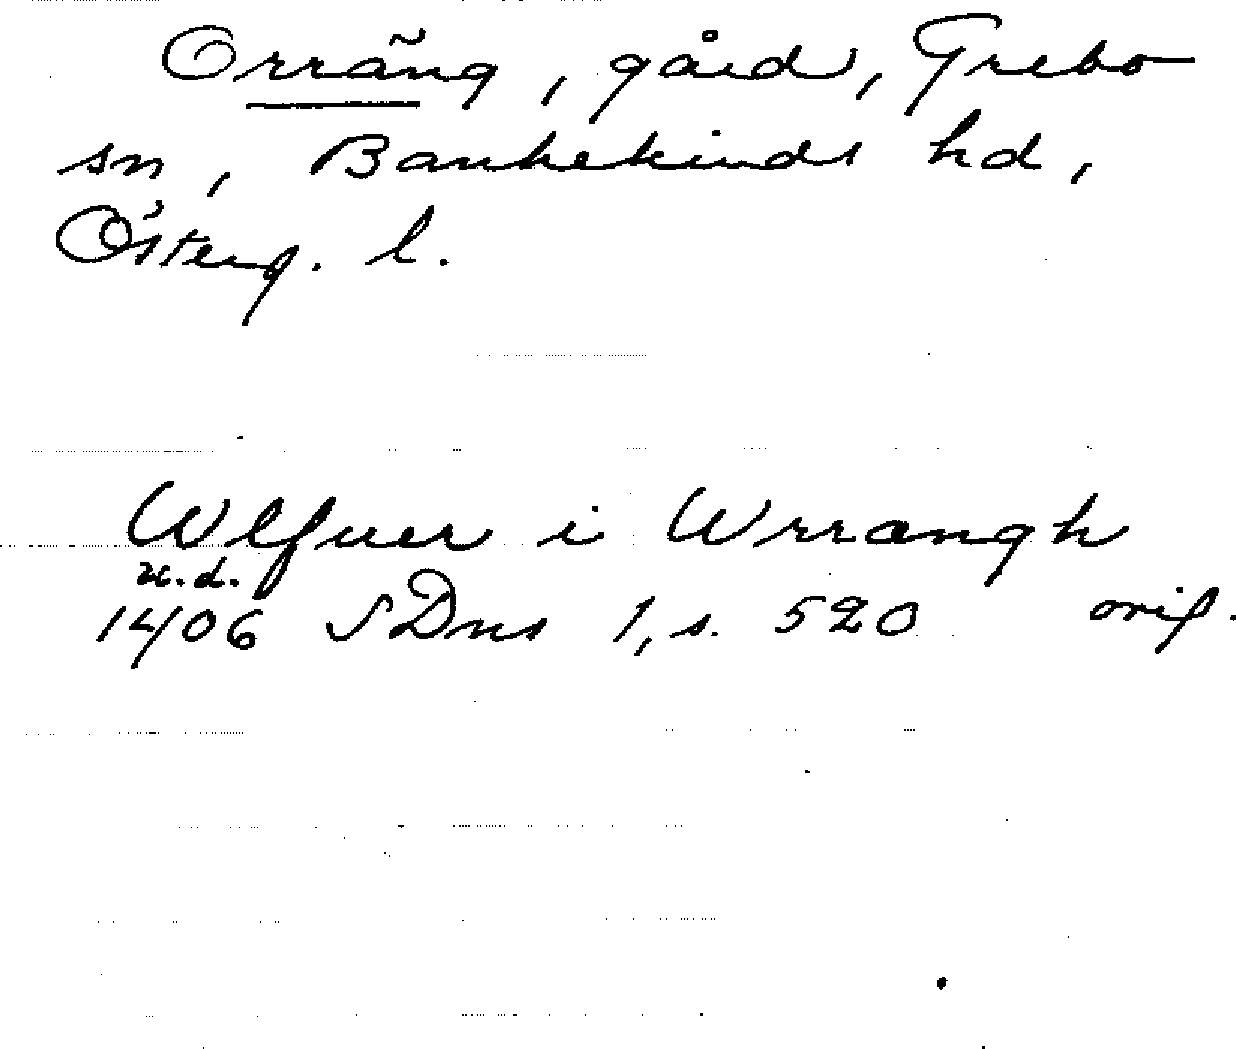 Orräng, gård, Grebo
sn, Bankekinds hd,
Österg. l.
Wlfuer i Wrrængh
u.d.
1406 SDns 1, s. 520 orig.